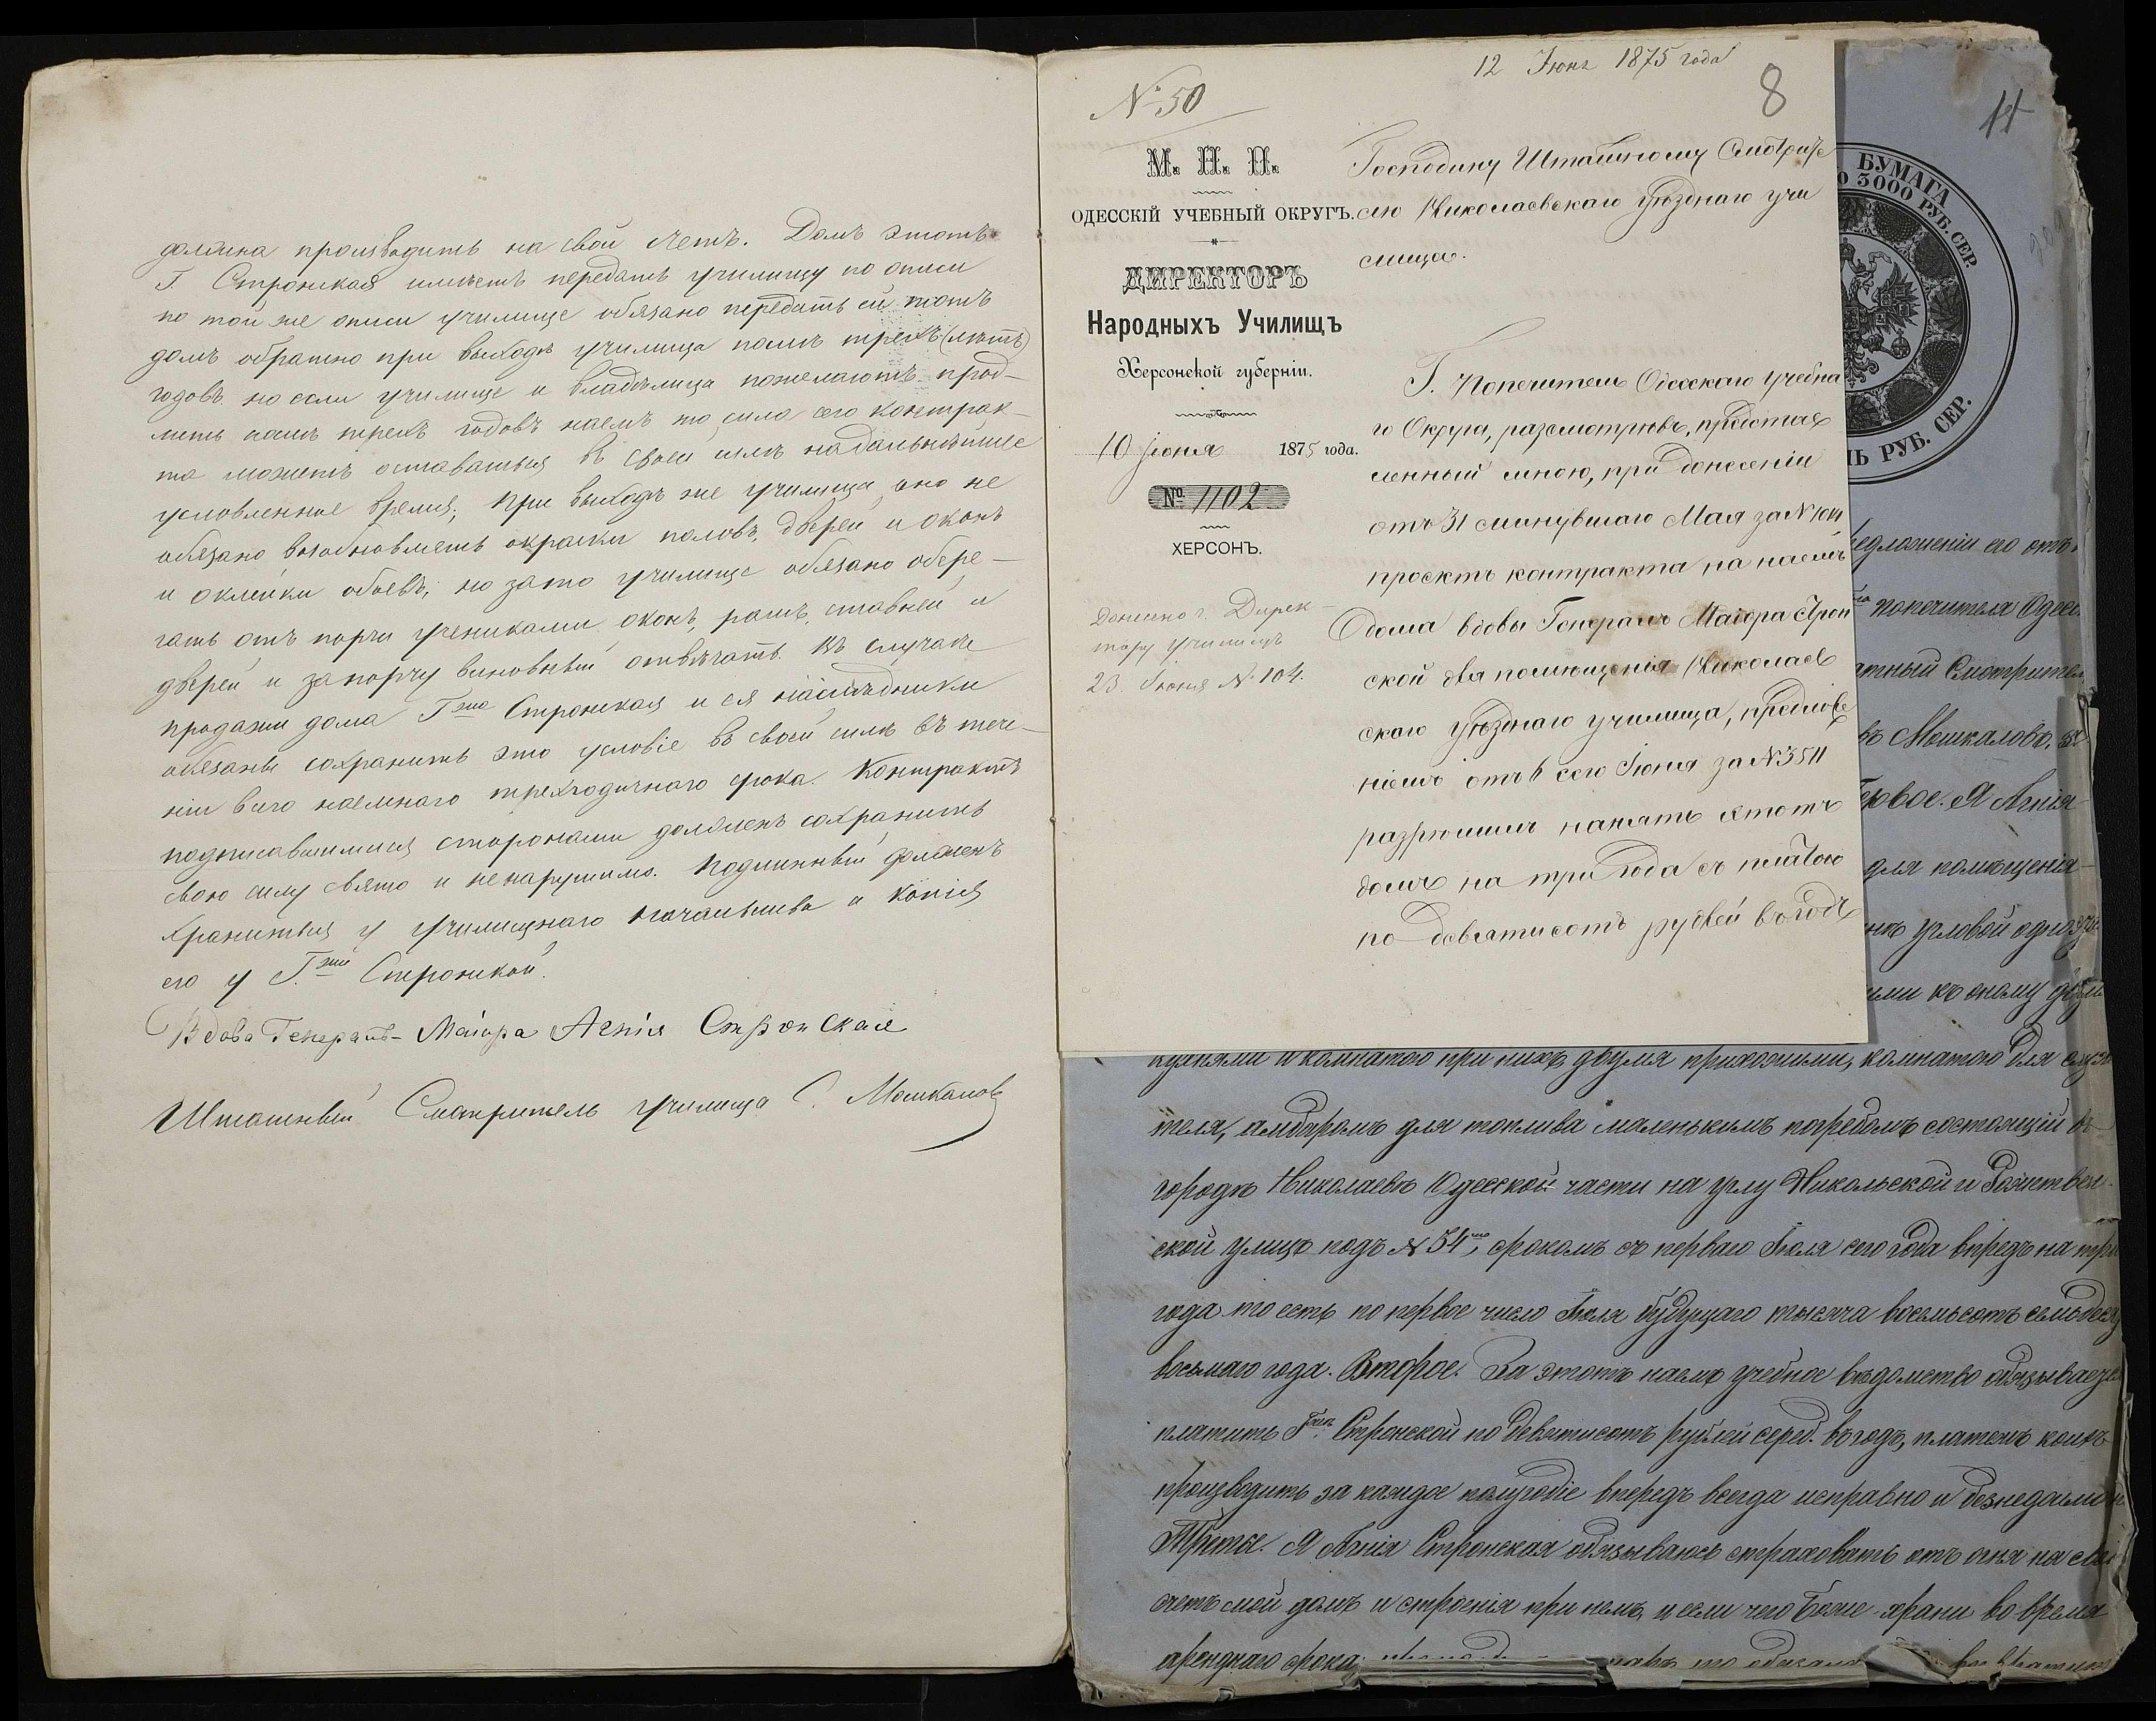 должна производить на свой счетъ. Домъ этотъ
Г. Стронская имѣетъ передать училищу по описи
по той же описи училище обязано передать ей тотъ
домъ обратно при выходѣ училища послѣ трехъ (лѣтъ)
годовъ. но если училище и владѣлица пожелаютъ прод-
лить послѣ трехъ годовъ наемъ то сила сего контрак-
та можетъ оставаться въ своей силѣ на дальнѣйшее
условленное время; при выходѣ же училища оно не
обязано возобновлять окраски половъ, дверей и оконъ
и оклейки обоевъ, но зато училище обязано обере-
гать отъ порчи учениками оконъ, рамъ, ставней и
дверей и за порчу виновный отвѣчать. Въ случаѣ
продажи дома Гжа Стронская и ея наслѣдники
обязаны сохранить это условіе въ своей силѣ въ тече-
ніи всего наемнаго трехгодичнаго срока. Контрактъ
подписавшимися сторонами долженъ сохранить
свою силу свято и ненарушимо. Подлинный долженъ
храниться у училищнаго начальства а копія
его у Г.жи Стронской.
Вдова Генералъ-Маіора Агнія Стронская
Штатный Смотритель училища С. Машкаловъ
12 Іюня 1875 года
№ 50
8
М. Н. П.
ОДЕССКІЙ УЧЕБНЫЙ ОКРУГЪ.
ДИРЕКТОРЪ
Народныхъ Училищъ
Херсонской губерніи.
10 Іюня 1875 года.
№ 1102
ХЕРСОНЪ.
Донесено г. Дирек-
тору Училищъ
23. Іюня № 104.
Господину Штатному Смотрите
лю Николаевскаго Уѣзднаго учи
лища.
Г. Попечитель Одесскаго Учебна
го Округа, разсмотрѣвъ, представ
ленный мною, при донесеніи
отъ 31 минувшаго Мая за №
проектъ контракта на наемъ
дома вдовы Генералъ Маіора Строн
ской для помѣщенія Николаев
скаго Уѣзднаго училища, предложе
ніемъ отъ 6 сего Іюня за № 3511
разрѣшилъ нанять этотъ
домъ на три года съ платою
по девятисотъ рублей въ годъ
11
БУМАГА
3000 РУБ. СЕР.
РУБ. СЕР.
едложеніи его отъ
попечителя Одес
атный Смотрител
Машкаловъ,
ервое. Я Агнія
для помѣщенія
угловой одно
ми къ оному
кухнями и комнатою при нихъ двумя прихожими, комнатою для служи
теля, амбаромъ для топлива маленькимъ погребомъ состоящій въ
городѣ Николаевѣ Одесской части на углу Никольской и Рождествен
ской улицъ подъ № 54мъ, срокомъ съ перваго Іюля сего года впредь на три
года то есть по первое число Іюля будущаго тысяча восемьсотъ семьдесят
восьмаго года. Второе. За этотъ наемъ учебное вѣдомство обязывается
платить Гжѣ Стронской по девятисотъ рублей сереб. въ годъ, платежъ коихъ
производить за каждое полугодіе впередъ всегда исправно и безнедоимо
Третье. Я Агнія Стронская обязываюсь страховать отъ огня на свой
счетъ мой домъ и строенія при немъ, и если чего Боже храни во время
аренднаго срока